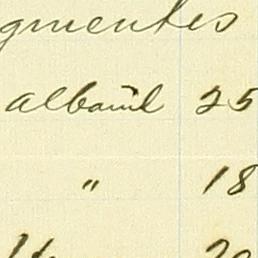 gmentes
albañil 25
" 18